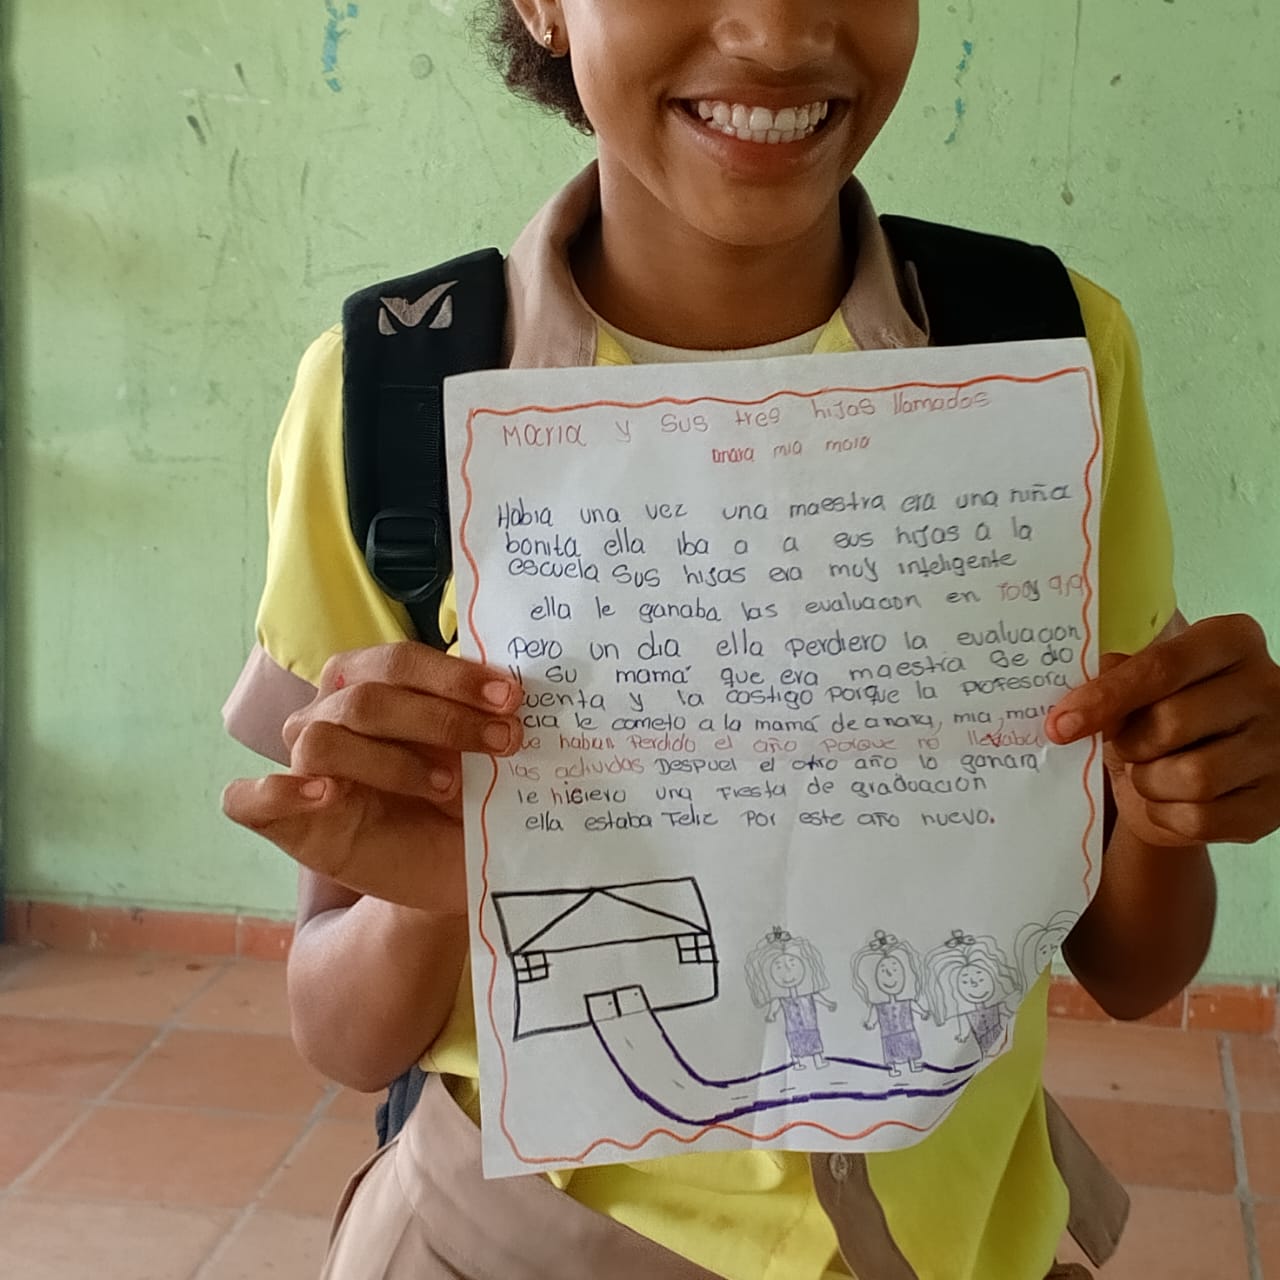 Maria y sus tres hijas llamadas
anara mia maia
Habia una vez una maestra era una niña
bonita ella iba a a sus hijas a la
escuela sus hijas era muy inteligente
ella le ganaba las evaluacon en
pero un dia ella perdiero la evaluacon
y su mamá que era maestra se dio
cuenta y la castigo porque la profesora
le cometo a la mamá de anara, mia, maia
que haban perdido el año porque no llevaba
las actividas Despuel el otro año lo ganara
le hisiero una fiesta de graduacion
ella estaba feliz por este año nuevo.